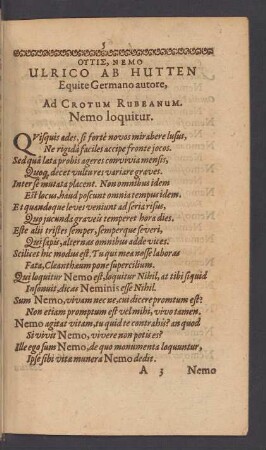 3
ΟΥΤΙΣ, NEMO
ULRICO AB HUTTEN
Equite Germano autore,
Ad CROTUM RUBEANUM.
Nemo loquitur.
QVisquis ades, si fortè novos mirabere lusus,
Ne rigidâ faciles accipe fronte jocos.
Sed quâ lata probis ageres convivia mensis,
Quoq, decet vultu res variare graves.
Inter se mutata placent. Non omnibus idem
Est locus, haud poscunt omnia tempus idem.
Et quandoque leves veniunt ad seria risus,
Quo jucunda graveis temperet hora dies.
Este alii tristes semper, semperque severi,
Qui sapis, alternas omnibus adde vices.
Scilicet hic modus est. Tu qui mea nosse laboras
Fata, Cleanthæum pone supercilium.
Qui loquitur Nemo est, loquitur Nihil, at tibi si quid
Insonuit, dicas Neminis esse Nihil.
Sum Nemo, vivam nec ne, cui dicere promtum est?
Non etiam promptum est vel mihi, vivo tamen.
Nemo agitat vitam, tu quid te contrahis? an quod
Si vivit Nemo, vivere non potis es?
Ille ego sum Nemo, de quo monumenta loquuntur,
Ipse sibi vitæ munera Nemo dedit.
A 3 Nemo